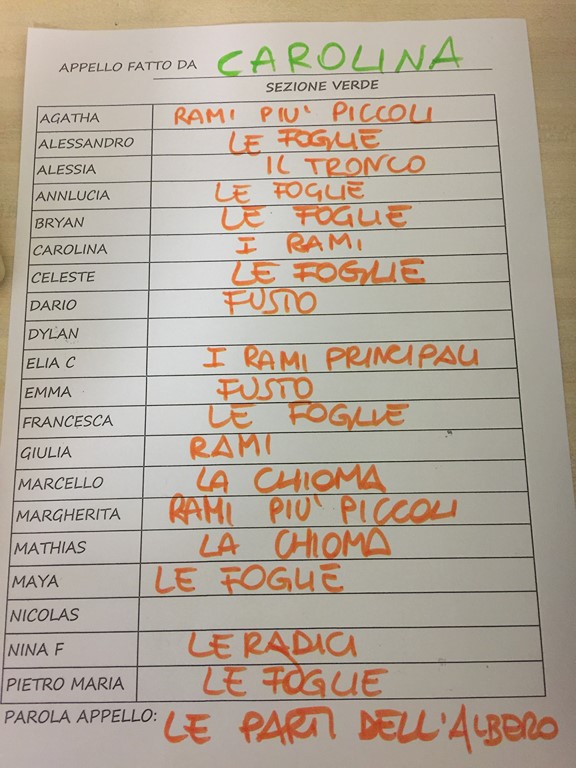 APPELLO FATTO DA CAROLINA
SEZIONE VERDE
AGATHA RAMI PIU' PICCOLI
ALESSANDRO LE FOGLIE
ALESSIA IL TRONCO
ANNLUCIA LE FOGLIE
BRYAN LE FOGLIE
CAROLINA I RAMI
CELESTE LE FOGLIE
DARIO FUSTO
DYLAN
ELIA C I RAMI PRINCIPALI
EMMA FUSTO
FRANCESCA LE FOGLIE
GIULIA RAMI
MARCELLO LA CHIOMA
MARGHERITA RAMI PIU' PICCOLI
MATHIAS LA CHIOMA
MAYA LE FOGLIE
NICOLAS
NINA F LE RADICI
PIETRO MARIA LE FOGLIE
PAROLA APPELLO: LE PARTI DELL'ALBERO